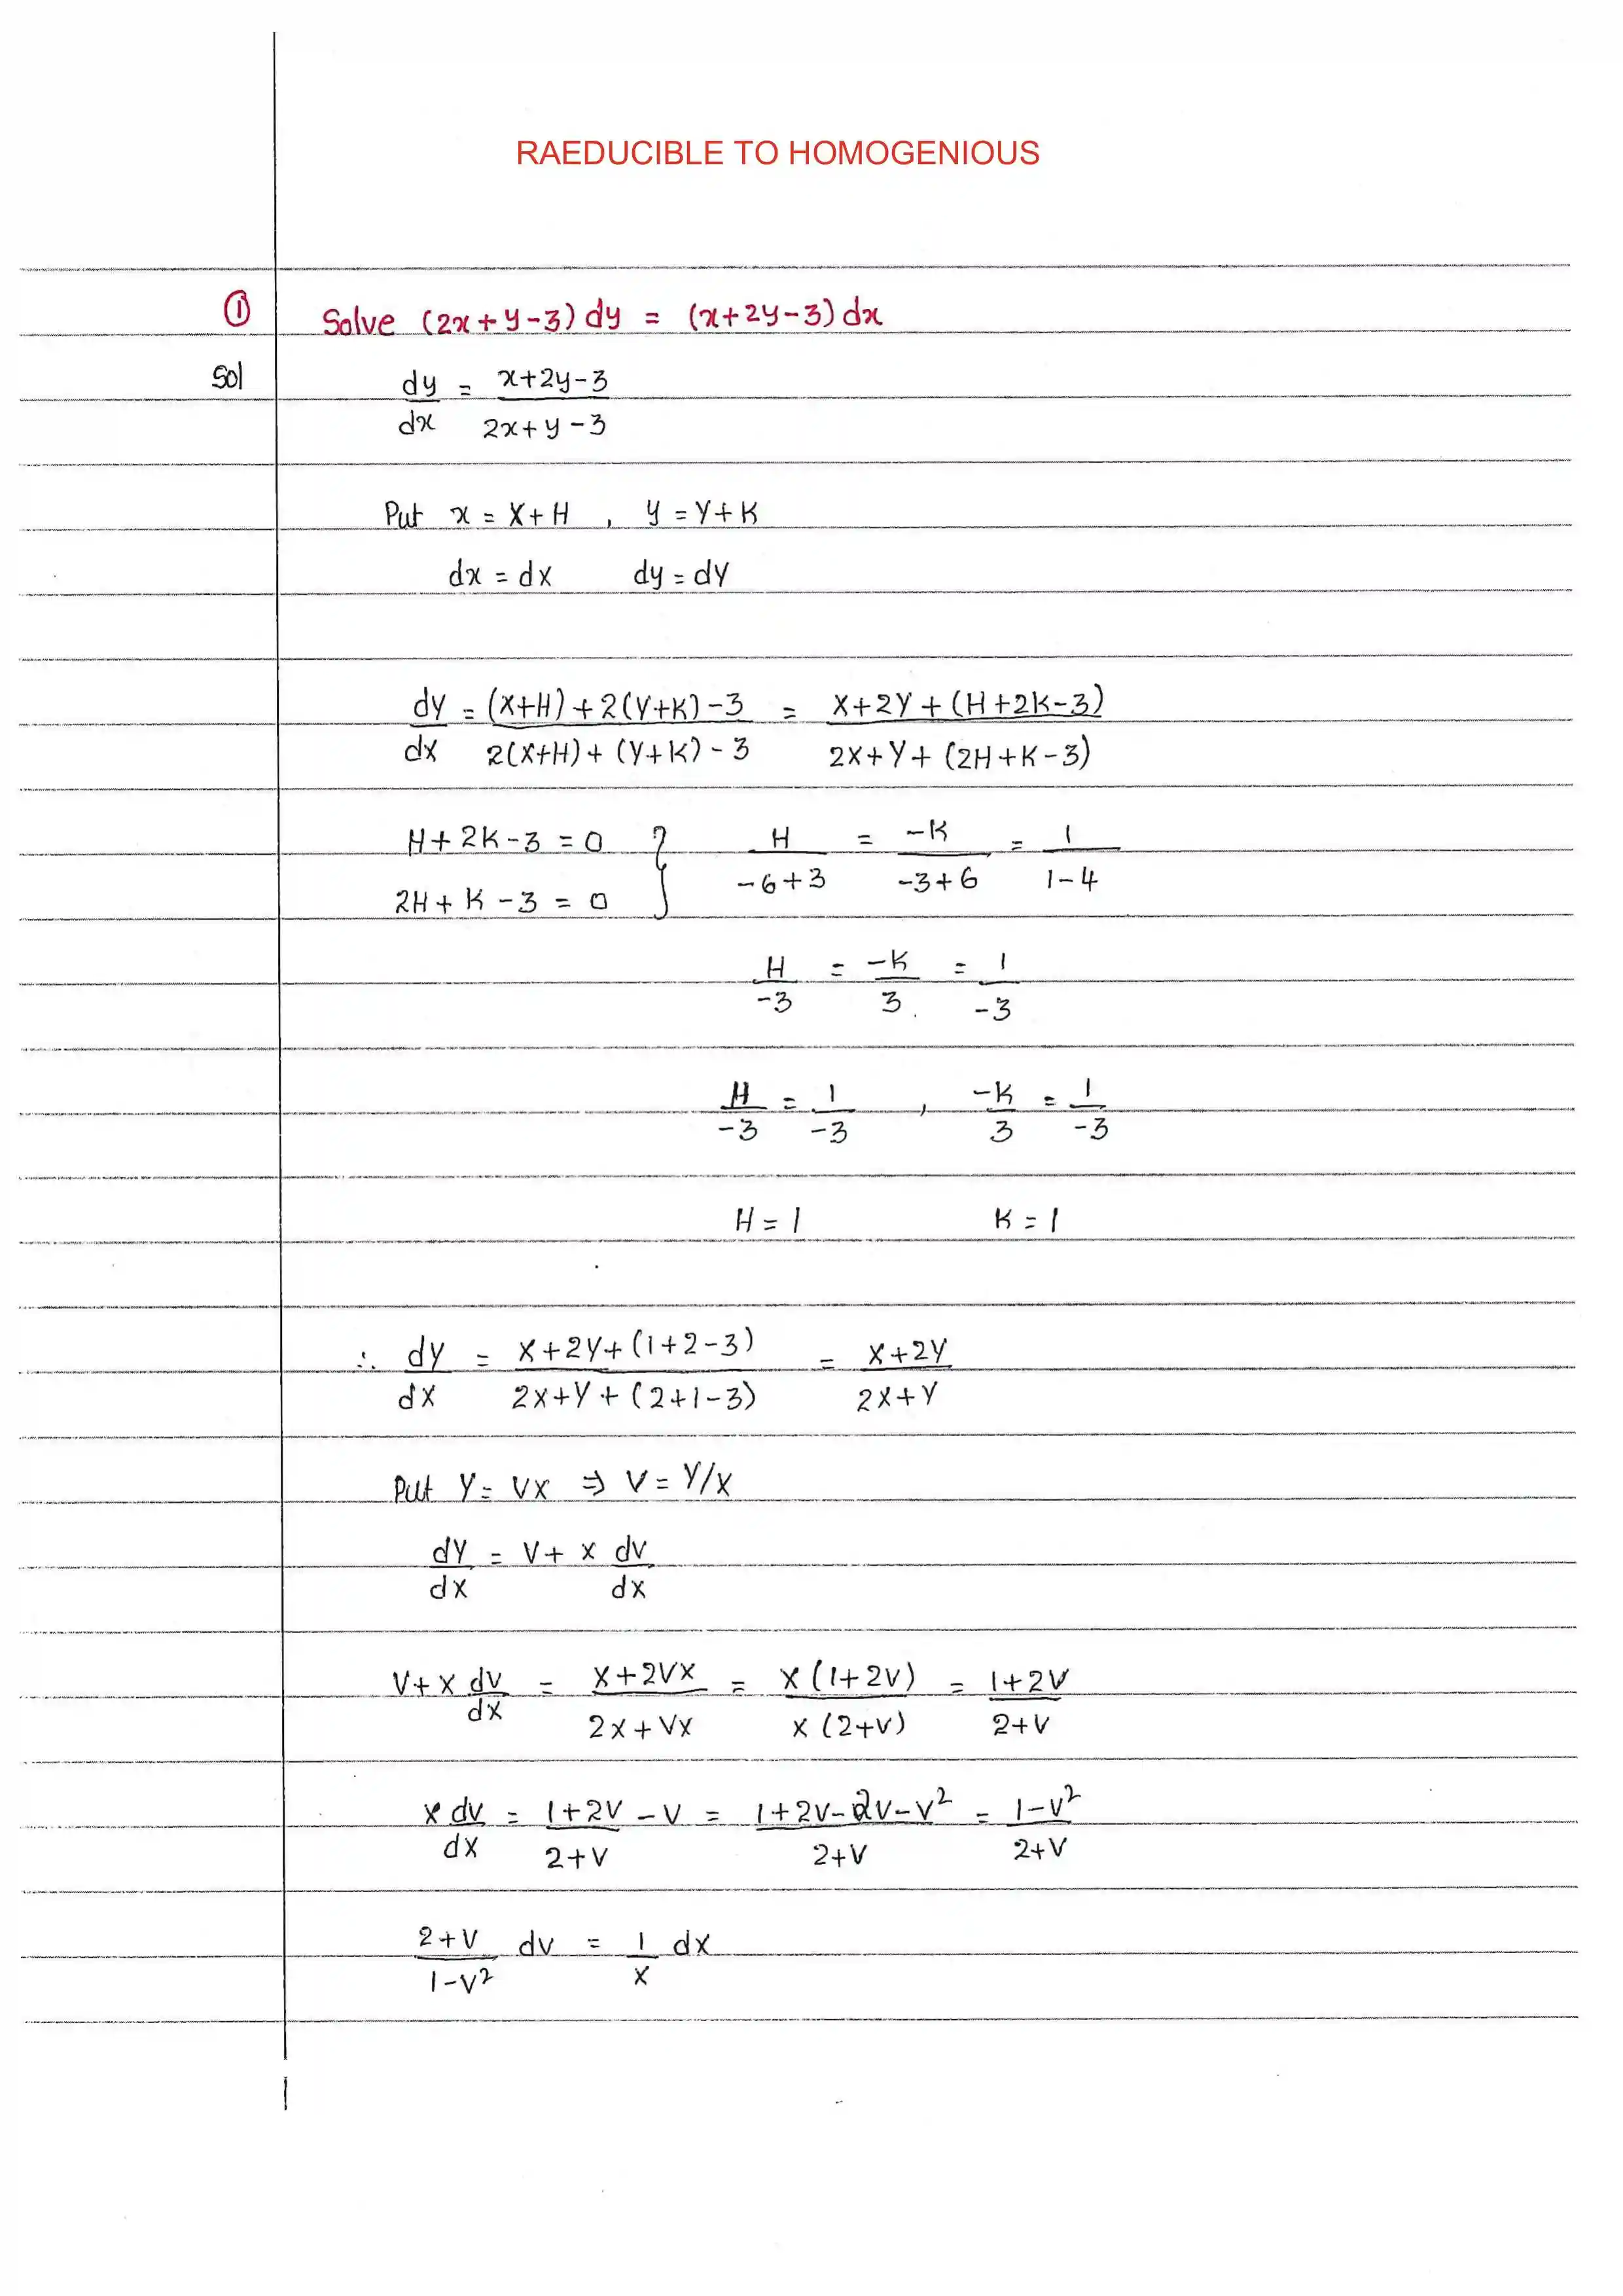 RAEDUCIBLE TO HOMOGENIOUS
① Solve (2x+y-3) dy = (x+2y-3) dx
Sol dy/dx = (x+2y-3)/(2x+y-3)
Put x = X+H , y = Y+K
dx = dX dy = dY
dY/dX = ((X+H)+2(Y+K)-3)/(2(X+H)+(Y+K)-3) = (X+2Y+(H+2K-3))/(2X+Y+(2H+K-3))
H+2K-3 = 0 } H/(-6+3) = -K/(-3+6) = 1/(1-4)
2H+K-3 = 0
H/-3 = -K/3 = 1/-3
H/-3 = 1/-3 , -K/3 = 1/-3
H = 1 K = 1
∴ dY/dX = (X+2Y+(1+2-3))/(2X+Y+(2+1-3)) = (X+2Y)/(2X+Y)
Put Y = VX ⇒ V = Y/X
dY/dX = V+X dV/dX
V+X dV/dX = (X+2VX)/(2X+VX) = X(1+2V)/X(2+V) = (1+2V)/(2+V)
X dV/dX = (1+2V)/(2+V) - V = (1+2V-2V-V²)/(2+V) = (1-V²)/(2+V)
(2+V)/(1-V²) dV = 1/X dX